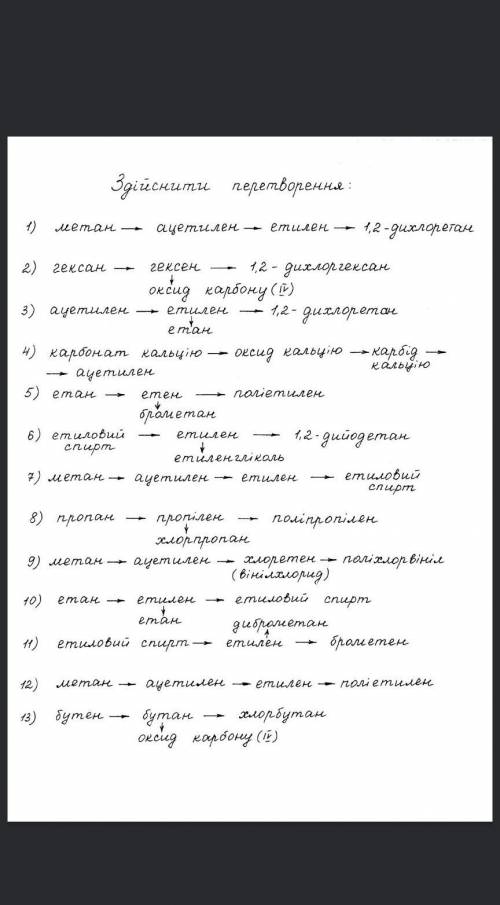 Здійснити перетворення:
1) метан → ацетилен → етилен → 1,2-дихлоретан
2) гексан → гексен → 1,2-дихлоргексан
↓
оксид карбону (IV)
3) ацетилен → етилен → 1,2-дихлоретан
↓
етан
4) карбонат кальцію → оксид кальцію → карбід кальцію →
→ ацетилен
5) етан → етен → поліетилен
↓
брометан
6) етиловий спирт → етилен → 1,2-дийодетан
↓
етиленгліколь
7) метан → ацетилен → етилен → етиловий спирт
8) пропан → пропілен → поліпропілен
↓
хлорпропан
9) метан → ацетилен → хлоретен → поліхлорвініл
(вінілхлорид)
10) етан → етилен → етиловий спирт
↓
етан
диброметан
↑
11) етиловий спирт → етилен → брометен
12) метан → ацетилен → етилен → поліетилен
13) бутен → бутан → хлорбутан
↓
оксид карбону (IV)